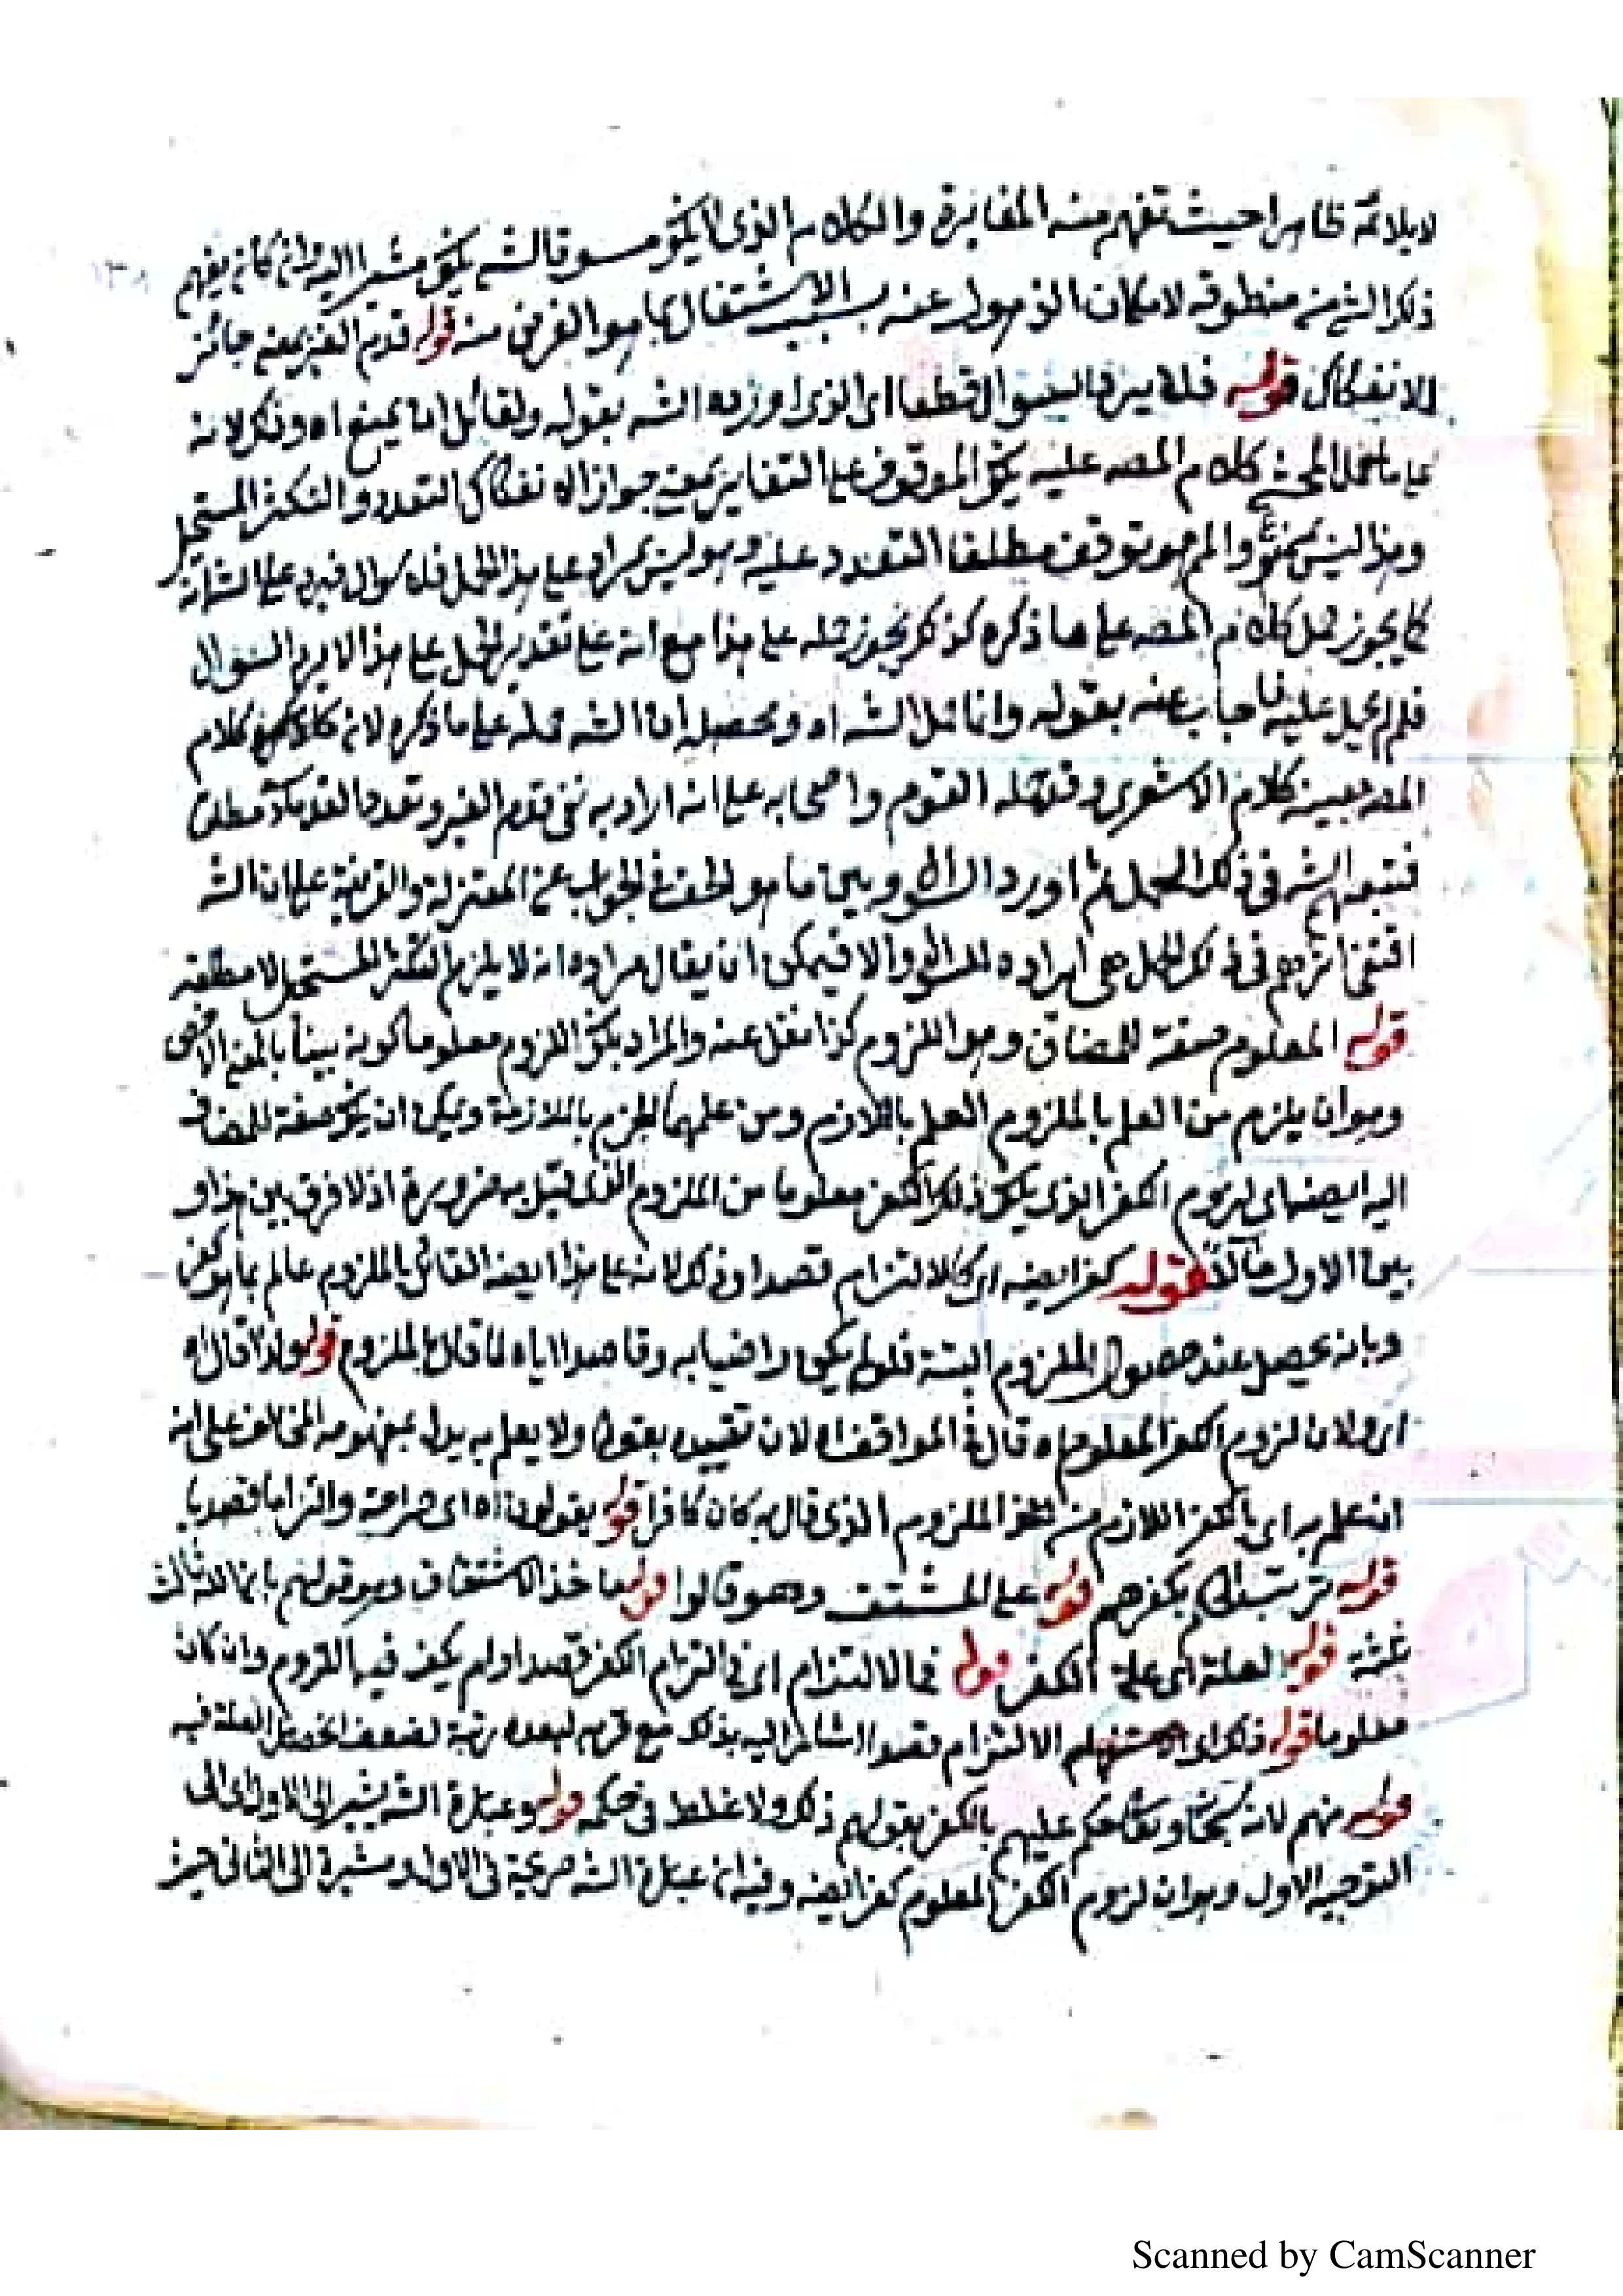 لا يلائمه ظاهرا حيث تفهم منه المغايرة والكلام الذى لا يكون مسوقا لشئ يكون مشيرا اليه وان كان يفهم
ذلك الشئ من منطوقه لامكان الذهول عنه بسبب الاشتغال بما هو الغرض منه قوله قدم الغير بمعنى جائز
الانفكاك قوله فلا يرد السؤال قطعا اى الذى اورده الشه بقوله ولقائل ان يمنع اه وذلك لانه
على ما حمل المحشى كلام المصه عليه يكون الموقوف على التغاير بمعنى جواز الانفكاك التعدد والتكثر المستحيل
وهذا ليس بممنوع والمم هو توقف مطلق التعدد عليه وهو ليس بمراد على هذا الحمل فلا سؤال فيرد على الشه انه
كما يجوز حمل كلام المصه على ما ذكره كذلك يجوز حمله على هذا مع انه على تقدير الحمل على هذا لا يرد السؤال
فلم لم يحمل عليه فاجاب عنه بقوله وانما حمل الشه اه ومحصله ان الشه حمله على ما ذكره لانه كلام
المصه بعينه كلام الاشعرى وقد حمله القوم واصحابه على انه اراد به نفى قدم الغير وتعدد القدماء مطلقا
فتبعهم الشه فى ذلك الحمل ثم اورد السؤال وبين ما هو الحق فى الجواب عن المعتزلة والقرينة على ان الشه
اقتفى اثرهم فى ذلك الحمل هى ايراده للسؤال والا فيمكن ان يقال مراده انه لا يلزم التكثر المستحيل لا مطلقه
قوله المعلوم صفة للمضاف وهو اللزوم كذا نقل عنه والمراد بكون اللزوم معلوما كونه بينا بالمعنى الاخص
وهو ان يلزم من العلم بالملزوم العلم باللازم ومن علمهما الجزم بالملازمة ويمكن ان يكون صفة للمضاف
اليه ايضا اى لزوم الكفر الذى يكون ذلك الكفر معلوما من الملزوم الذى قيل به ضرورة اذ لا فرق بين هذا و
بين الاول مآلا قوله كفر ايضه اى كالالتزام قصدا وذلك لانه على هذا ايضه القائل بالملزوم عالم بما هو كفر
وبانه يحصل عند حصول الملزوم البتة فلو لم يكن راضيا به وقاصدا اياه لما قال بالملزوم قوله ولذا قال اه
اى ولان لزوم الكفر المعلوم اه قال فى المواقف اه لان تقييده بقوله ولا يعلم به يدل بمفهومه المخالف على انه
ان علم به اى بالكفر اللازم من الملزوم الذى قال به كان كافرا قوله بقولون اه اى صراحة والتزاما قصديا
قوله ترتب الحكم بكفرهم قوله على المشتق وهو قالوا قوله ماخذ الاشتقاق وهو قولهم بان الله ثالث
ثلثة قوله العلة اى علة الكفر قوله فى الالتزام اى فى التزام الكفر قصدا ولم يكف فيها اللزوم وان كان
معلوما قوله ذلك اى الالتزام قصدا اشار اليه بذلك مع قربه لبعده رتبة لضعف العلة فيه
قوله منهم لانه سبحانه وتعالى حكم عليهم بالكفر بقولهم ذلك ولا غلط فى حكمه قوله وعبارة الشه يشير الى الاول اى الى
التوجيه الاول وهو ان لزوم الكفر المعلوم كفر ايضه وفيه ان عبارة الشه صريحة فى الاول ومشيرة الى الثانى حيث
Scanned by CamScanner